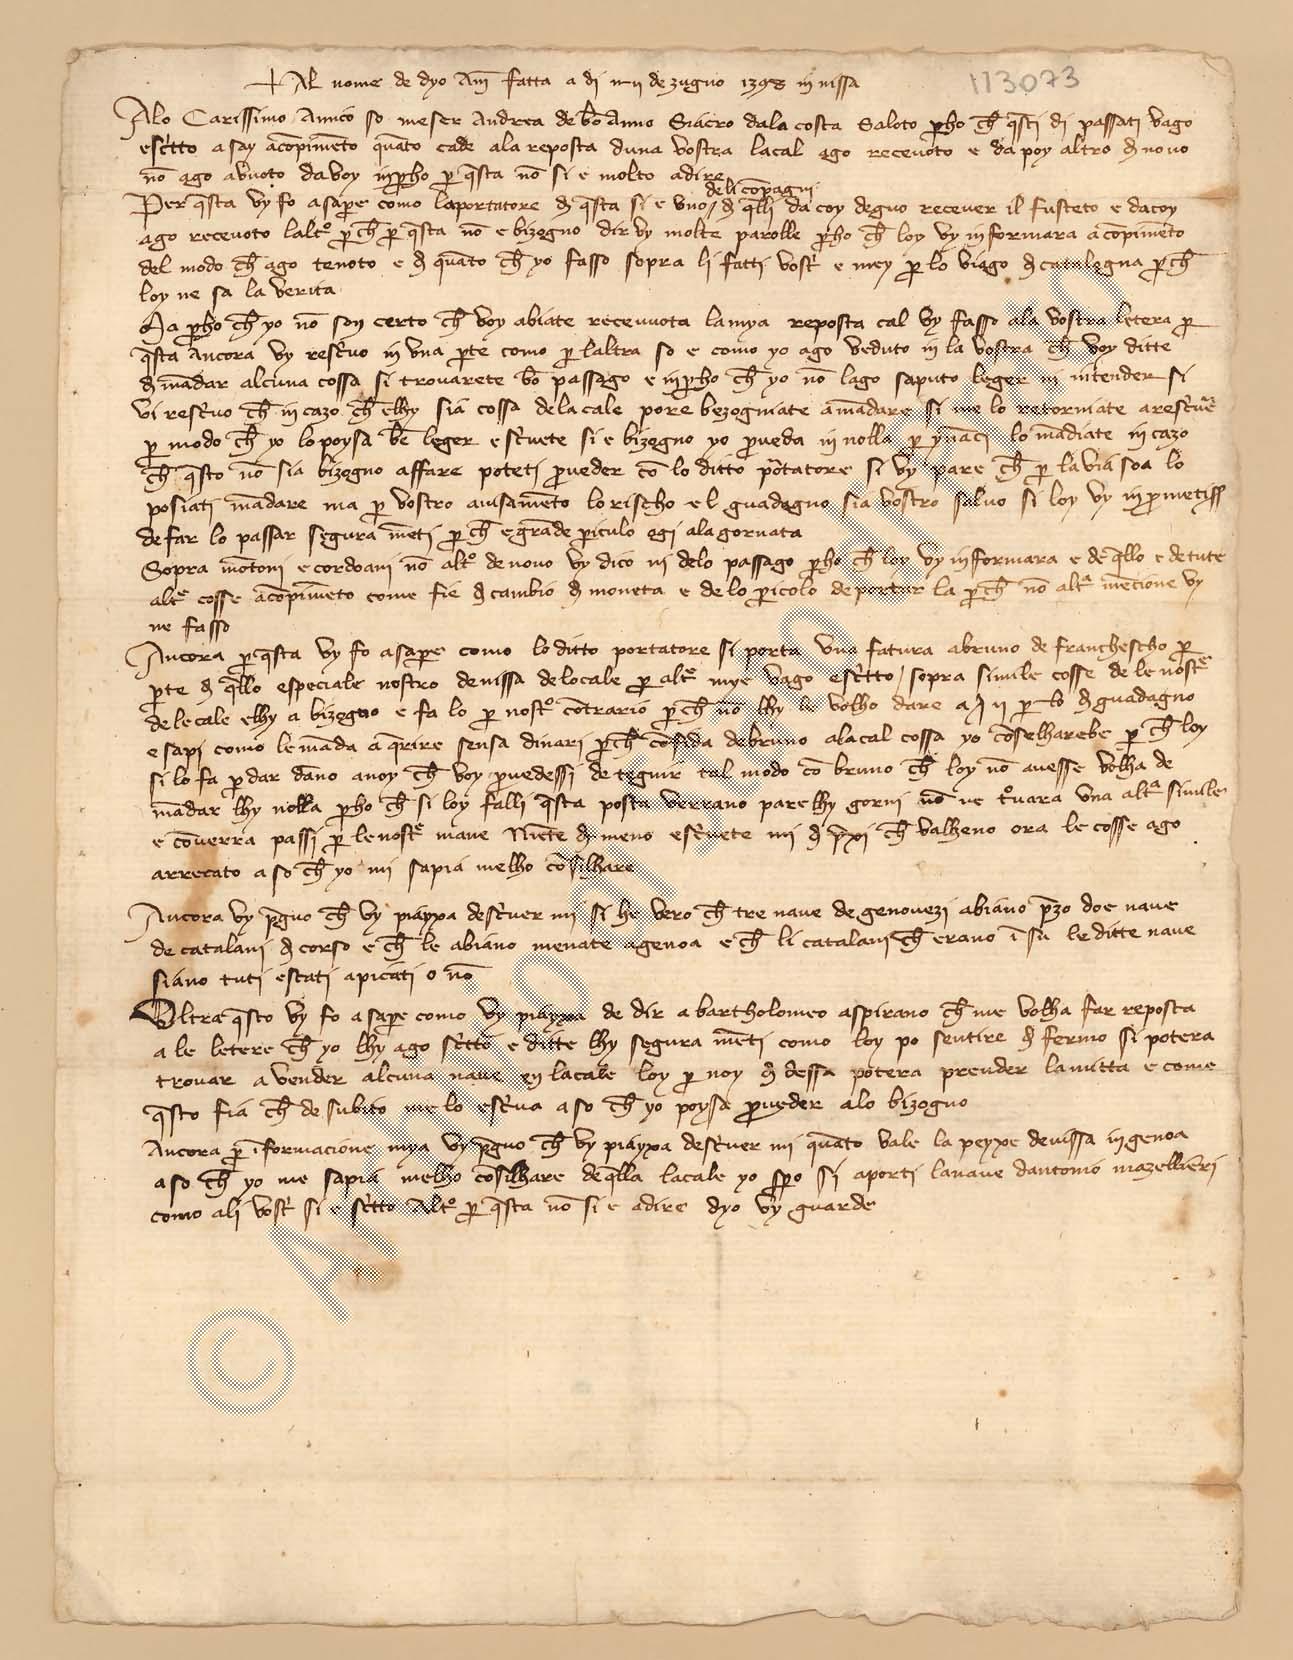 113073
+ Al nome de dyo Am̅ fatta a di iiii de zugno 1398 in nissa
Alo Carissimo Amico so meser Andrea de bo̅ Anno Siacro dala costa Saloto p̱ho ch̅ q̅sti di passati vago
esc̓tto asay aco̅pime̅to qua̅to cade ala reposta duna vostra lacal ago recevoto e da poy altro d̅ novo
no̅ ago avuoto da voy inp̱ho p̱ q̅sta no̅ si e molto adire
deli co̅pagni
Per q̅sta vy fo asap̱e como laportatore d̅ q̅sta si e uno / d̅ q̅lli da coy degno recever il fusteto e dacoy
ago recevoto lalt°. p̱ ch̅ p̱ q̅sta no̅ e bizogno dir vy molte parolle p̱ho ch̅ loy vy informara aco̅pime̅to
del modo ch̅ ago tenoto e d̅ qua̅to ch̅ yo fasso sopra li fatti vost̓ e mey p̱ lo viago d̅ catalogna p̱ ch̅
loy ne sa la verita
Ma p̱ho ch̅ yo no̅ son certo ch̅ voy abiate recevuota lamya reposta cal vy fasso ala vostra letera p̱
q̅sta ancora vy resc̓vo in una p̱te como p̱ laltra so e como yo ago veduto in la vostra ch̅ voy ditte
d̅ ma̅dar alcuna cossa si trovarete bo̅ passago e inp̱ho ch̅ yo no̅ lago saputo leger ni intender si
vi resc̓vo ch̅ in cazo ch̅ elhy sia cossa dela cale pore bezogniate ama̅dare si me lo retorniate aresc̓ve̅
p̱ modo ch̅ yo lo poysa be̅ leger e sc̓vete si e bizogno yo p̱veda in nolla p̱ yna̅ci lo ma̅diate in cazo
ch̅ q̅sto no̅ sia bizogno affare poteti p̱veder co̅ lo ditto po̅tatore si vy pare ch̅ p̱ la via soa lo
posiati ma̅dare ma p̱ vostro avisame̅to lo rischo el guadagno sia vostro salvo si loy vy inp̱metiss
de far lo passar segura me̅ti p̱ ch̅ e gra̅de p̱iculo ogi ala gornata
Sopra mo̅toni e cordoani no̅ alt°. de novo vy dico ni delo passago p̱ho ch̅ loy vy informara e de q̅llo e de tute
alt̅e cosse aco̅pime̅to come fie d̅ cambio d̅ moneta e de lo p̱icolo de portar la p̱ ch̅ no̅ alt̅a me̅cione vy
ne fasso
Ancora p̱ q̅sta vy fo asap̱e como lo ditto portatore si porta una fatura abruno de franchescho p̱
p̱te d̅ q̅llo especiale nostro de nissa de locale p̱ alt̅e mye vago esc̓tto / sopra simile cosse de le nost̅e
de le cale elhy a bizogno e fa lo p̱ nost°. co̅trario p̱ ch̅ no̅ lhy le volho dare a ꝭ ii p̱ lb d̅ guadagno
e sapi como le ma̅da a q̅rire sensa dinari p̱ ch̅ co̅fida de bruno ala cal cossa yo co̅selharebe p̱ ch̅ loy
si lo fa p̱ dar da̅no anoy ch̅ voy p̱vedessi de teguir tal modo co̅ bruno ch̅ loy no̅ avesse volha de
ma̅dar lhy nolla p̱ho ch̅ si loy falli q̅sta posta verrano parelhy gorni no̅ ne t°vara una alt̅a simile
e co̅verra passi p̱ le nost̅e mane Nie̅te d̅ meno esc̓vete mi d̅ p̅xi ch̅ valheno ora le cosse ago
arrecato a so ch̅ yo mi sapia melho co̅silhare
Ancora vy p̅gno ch̅ vy piayxa desc̓ver mi si he vero ch̅ tre nave de genovezi abiano p̅zo doe nave
de catalani d̅ corso e ch̅ le abiano menate agenoa e ch̅ li catalani ch̅ erano i̅ su le ditte nave
siano tuti estati apicati o no̅
Oltra q̅sto vy fo asap̱e como vy piayxa de dir a bartholomeo aspirano ch̅ me volha far reposta
a le letere ch̅ yo lhy ago sc̓tto e ditte lhy segura me̅ti como loy po sentire d̅ fermo si potera
trovar a vender alcuna nave en lacale loy p̱ noy d̅ dessa potera prender la mitta e come
q̅sto fia ch̅ de subito me lo esc̓va a so ch̅ yo poysa p̱veder alo bizogno
Ancora p̱ i̅formacione mya vy p̅gno ch̅ vy piayxa desc̓ver mi qua̅to vale la peyxe de nissa in genoa
a so ch̅ yo me sapia melho co̅silhare de q̅lla lacale yo sp̱o si aporti lanave dantonio mazellieri
como ali vost̓ si e sc̓tto Alt°. p̱ q̅sta no̅ si e adire dyo vy guarde